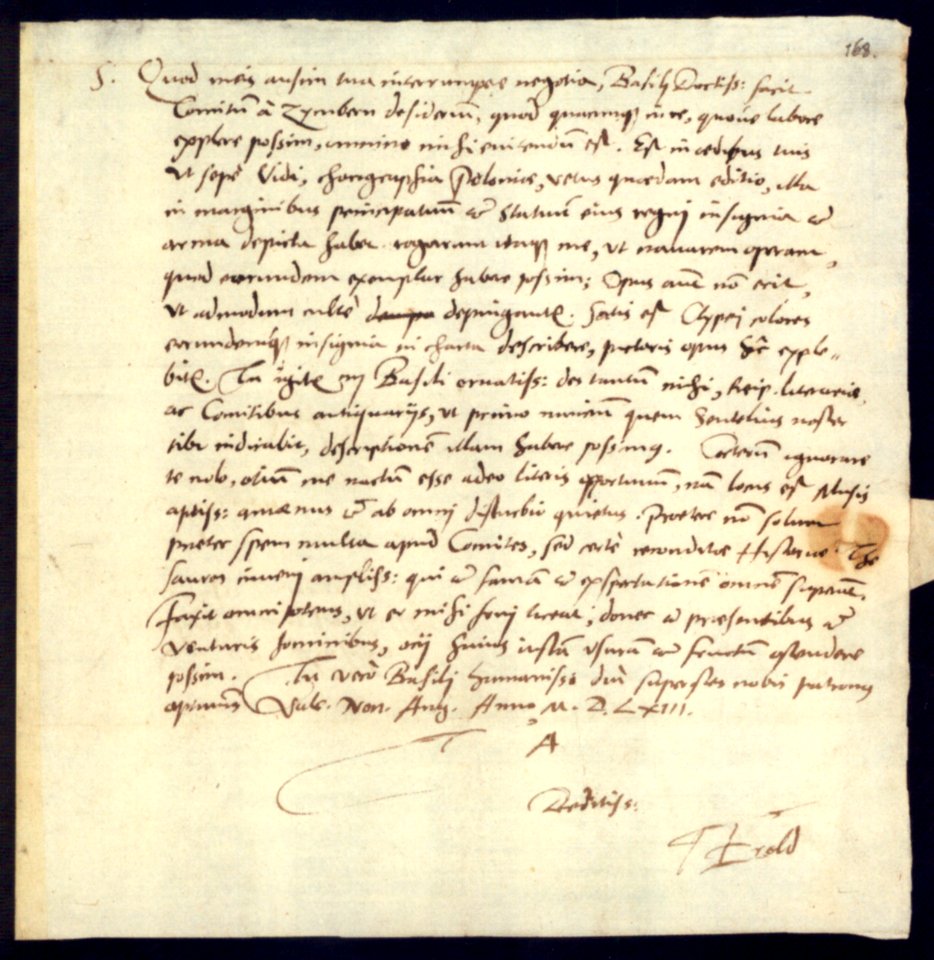 168.
S. Quod meis ausim tua interrumpere negotia, Basilj Doctiss: facit
Comitũ à Zymbern desideriũ, quod quacunq; in re, quove labore
explere possim, omnino mihi enitendũ est. Est in aedibus tuis
ut sepè vidi, chorigraphia Polonica, vetus quaedam editio, illa
in marginibus principatuũ & statuũ eius regnj insignia &
arma depicta habet. rogarunt itaq; me, ut navarem operam,
quod eorundem exemplar habere possim; Opus autẽ nõ erit,
ut admodum cultè depingantr. Satis est Clypej colores
eorundemq; insignia in charta describere, pictoris opus hĩc exple-
bitr. Tu igitr mj Basili ornatiss: des tantum mihi, Reip. literariae,
ac Comitibus antiquarijs, ut primo nuncium quem noster
tibi indicabit, descriptionẽ illam habere possimq. Ceterũ ignorare
te nolo, otiũ me nactum esse adeo literis opportunum, nam locus est Musis
aptiss: amoenus & ab omnj disturbio quietus. Praeterea nõ solum
praeter spem multa apud Comites, sed certè reconditae Historiae The
sauros invenj ampliss: qui & famã & exspectationẽ omnẽ superant.
Faxit omnipotens, ut eo mihi fruj liceat; donec & praesentibus &
venturis hominibus, ocij huius iustã usuram & fructum ostendere
possim. Tu verò Basilj humaniss: diu superstes nobis patronus
optimus Vale. Non. Aug. Anno M. D. LXIII.
T A
Deditiss:
Herold